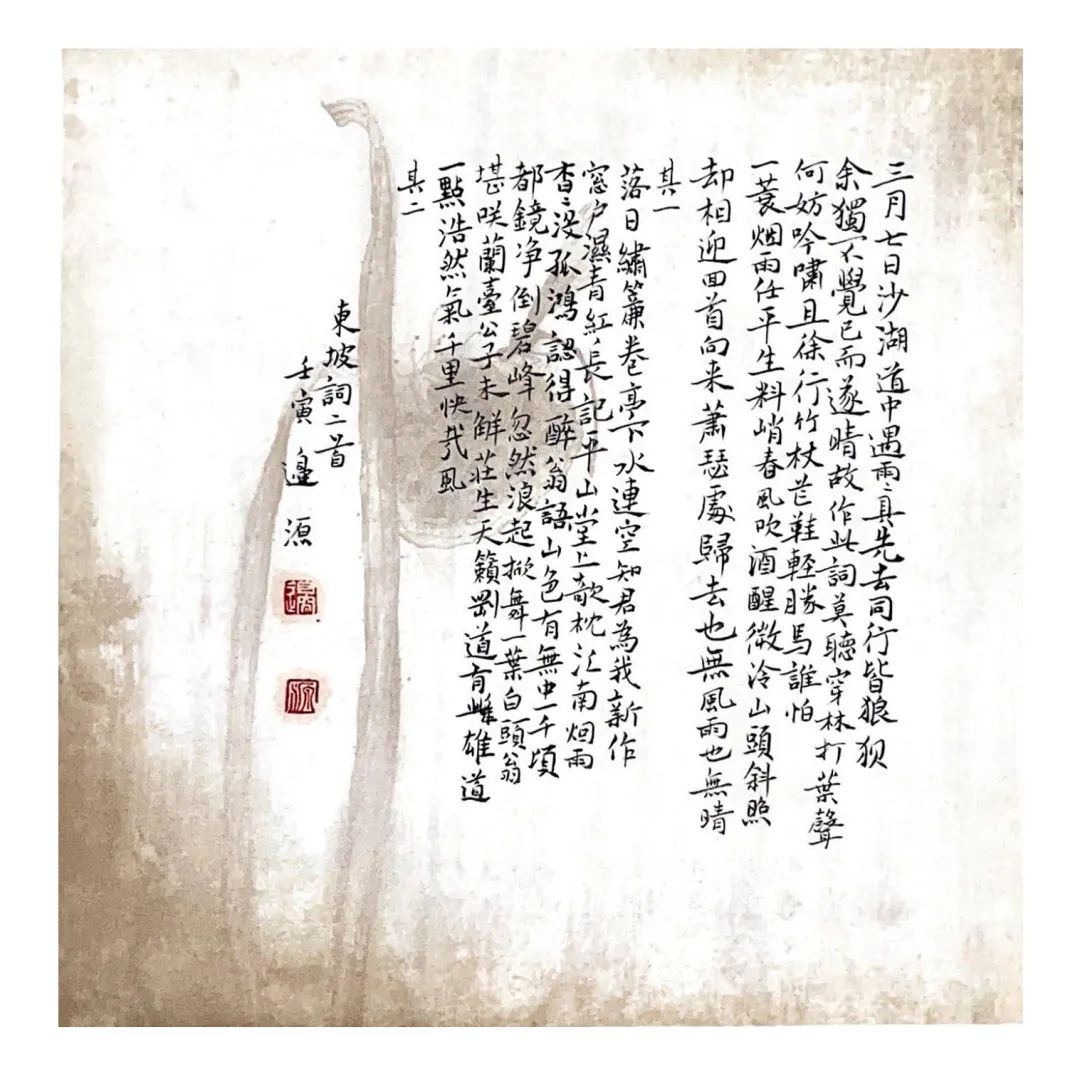 三月七日沙湖道中遇雨〻具先去同行皆狼狈
余獨不覺已而遂晴故作此詞莫聽穿林打葉聲
何妨吟嘯且徐行竹杖芒鞋輕勝馬誰怕
一蓑烟雨任平生料峭春風吹酒醒微冷山頭斜照
却相迎回首向来蕭瑟處歸去也無風雨也無晴
其一
落日繡簾卷亭下水連空知君為我新作
窓户濕青紅長記平山堂上欹枕江南烟雨
杳〻没孤鴻認得醉翁語山色有無中一千頃
都鏡净倒碧峰忽然浪起掀舞一葉白頭翁
堪咲蘭臺公子未解莊生天籟剛道有雌雄道
一點浩然氣千里快哉風
其二
東坡詞二首
壬寅邊源